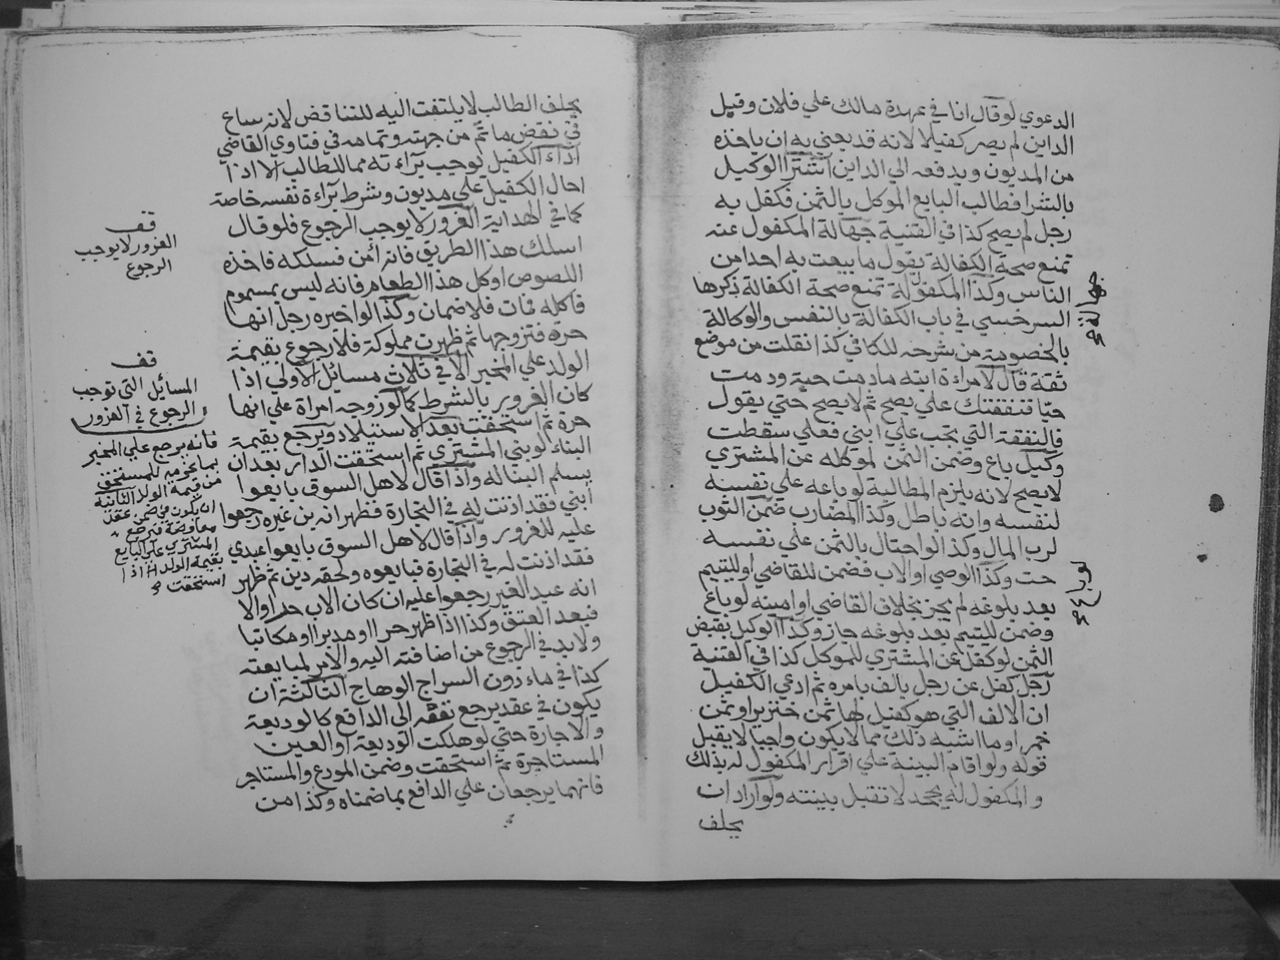 الدعوي لو قال انا في عهدة مالك علي فلان وقيل
الداين لم يصر كفيلا لانه قد يعني به ان ياخذه
من المديون ويدفعه الي الداين اشترا الوكيل
بالشرا فطالب البايع الموكل بالثمن فكفل به
رجل لم يصح كذا في القنية جهالة المكفول عنه
تمنع صحة الكفالة بقول ما بيعت به احدا من
الناس وكذا المكفول له تمنع صحة الكفالة ذكرها
السرخسي في باب الكفالة بالنفس والوكالة
بالخصومة من شرحه للكافي كذا نقلت من موضع
ثقة قال لامراءة ابنه مادمت حية ودمت
حيا فنفقتك علي يصح ثم لا يصح حتي يقول
فالنفقة التي تجب علي ابني فعلي سقطت
وكيل باع وضمن الثمن لموكله عن المشتري
لا يصح لانه يلزم المطالبة لو باعه علي نفسه
لنفسه وانه باطل وكذا المضارب ضمن الثوب
لرب المال وكذا لو احتال بالثمن علي نفسه
حت وكذا الوصي او الاب فضمن للقاضي او لليتيم
بعد بلوغه لم يجز بخلاف القاضي او امينه لو باع
وضمن لليتيم بعد بلوغه جاز وكذا الوكيل بقبض
الثمن لو كفل عن المشتري للموكل كذا في القنية
رجل كفل عن رجل بالف بامره ثم ادعي الكفيل
ان الالف التي هو كفيل لها ثمن خنزير او ثمن
خمر او ما اشبه ذلك مما لا يكون واجبا لا يقبل
قوله ولو اقام البينة علي اقرار المكفول له بذلك
والمكفول له يجحد لا تقبل بينته ولو اراد ان
يحلف
يحلف الطالب لا يلتفت اليه للتناقض لانه ساع
في نقض ما تم من جهته وتمامه في فتاوي القاضي
اداء الكفيل يوجب براءته مما للطالب الا اذا
احال الكفيل علي مديون وشرط براءة نفسه خاصة
كما في الهداية الغرور لا يوجب الرجوع فلو قال
اسلك هذا الطريق فانه أمن فسلكه فاخذه
اللصوص او كل هذا الطعام فانه ليس بمسموم
فاكله فمات فلا ضمان وكذا لو اخبره رجل انها
حرة فتزوجها ثم ظهرت مملوكة فلا رجوع بقيمة
الولد علي المخبر الا في ثلاث مسائل الاولي اذا
كان الغرور بالشرط كما لو زوجه امراة علي انها
حرة ثم استحقت بعد الاستيلاد ويرجع بقيمة
البناء لو بني المشتري ثم استحقت الدار بعد ان
يسلم البنا له واذا قال لاهل السوق بايعوا
ابني فقد اذنت له في التجارة فظهر انه بن غيره رجعوا
عليه للغرور واذا قال لاهل السوق بايعوا عبدي
فقد اذنت له في التجارة فبايعوه ولحقه دين ثم ظهر
انه عبد الغير رجعوا عليه ان كان الاب حر او الا
فبعد العتق وكذا اذا ظهر حرا او مدبرا او مكاتبا
ولا بد في الرجوع من اضافته اليه والامر لمبايعته
كذا في ماءذون السراج الوهاج الثالثة ان
يكون في عقد يرجع نفعه الي الدافع كالوديعة
والاجارة حتي لو هلكت الوديعة او العين
المستاجرة ثم استحقت وضمن المودع والمستاجر
فانهما يرجعان علي الدافع بما ضمناه وكذا من
قف
الغرور لا يوجب
الرجوع
قف
المسائل التي توجب
الرجوع في الغرور
فانه يرجع علي المخبر
بما غرمه للمستحق
من قيمة الولد الثانية
ان يكون في ضمن عقد
معاوضة فيرجع
المشتري علي البايع
بقيمة الولد اذا
استحقت